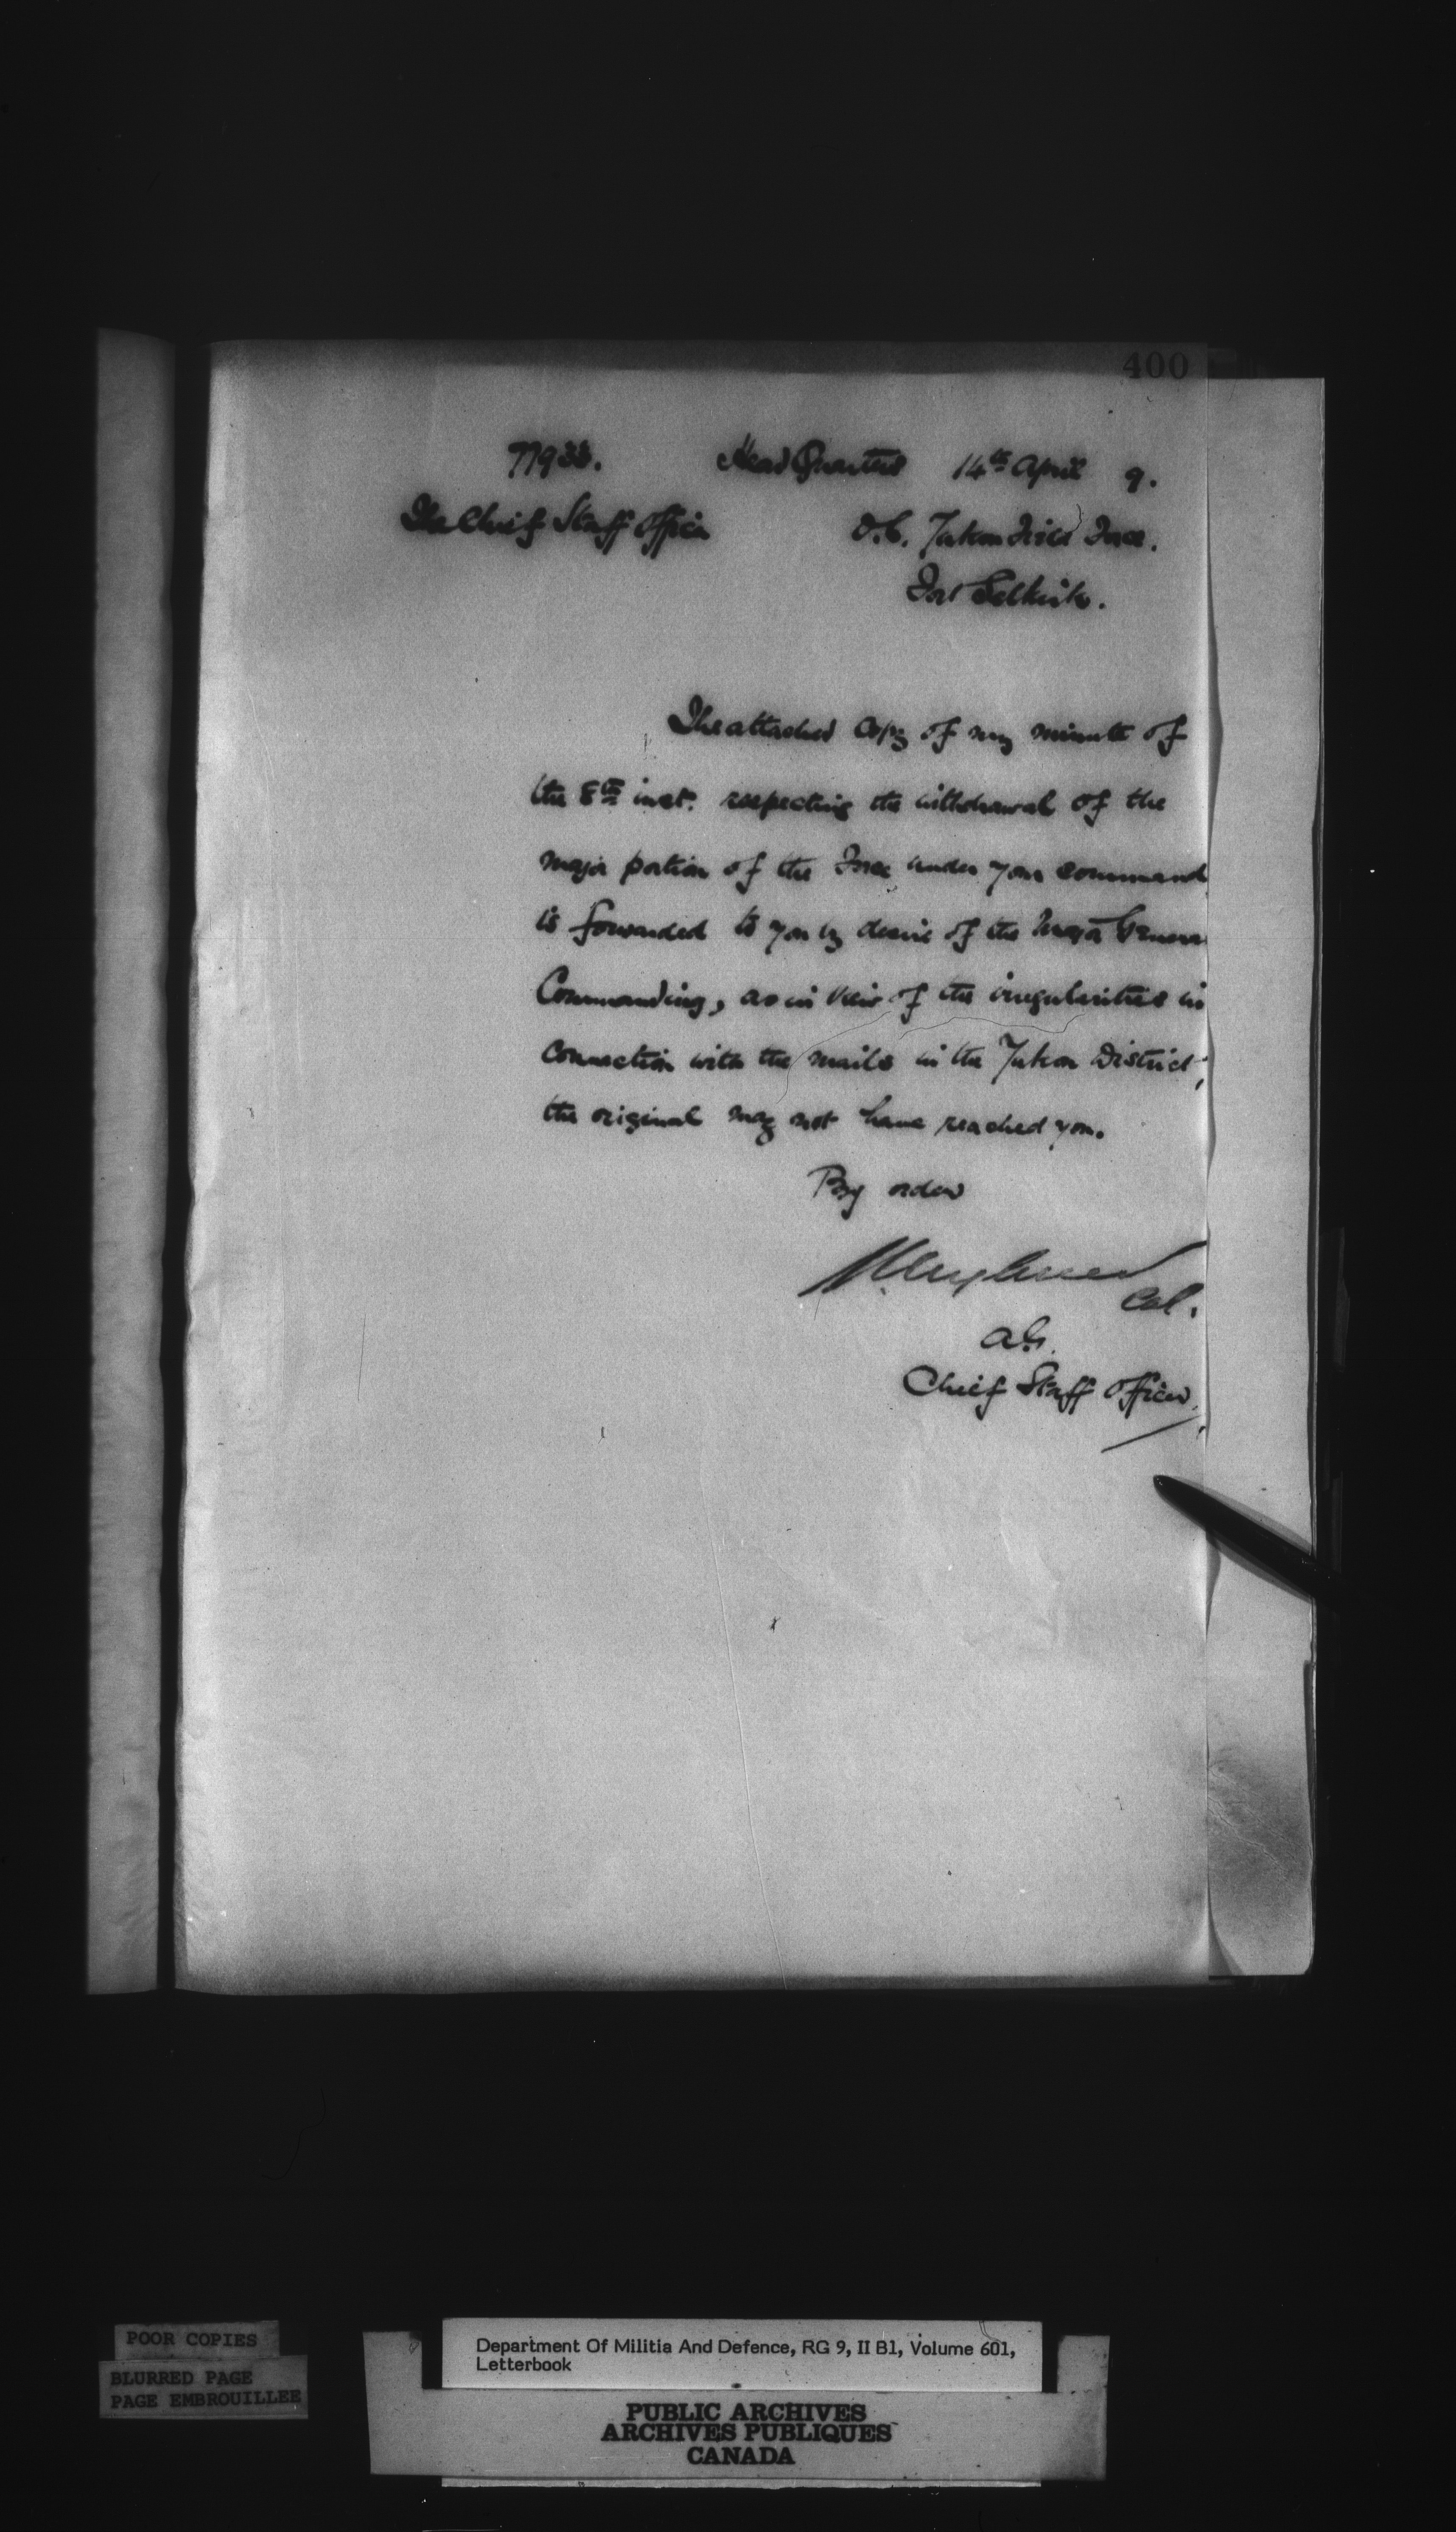 400
77933. Head Quarters 14th April 9.
The Chief Staff Officer O.C. Yukon Field Force.
Fort Selkirk.
The attached copy of my minute of
the 8th inst. respecting the withdrawal of the
major portion of the Force under your command
is forwarded to you by desire of the Major General
Commanding, as in view of the irregularities in
connection with the mails in the Yukon District,
the original may not have reached you.
By order
Col.
A.G.
Chief Staff Officer
POOR COPIES
BLURRED PAGE
PAGE EMBROUILLEE
Department Of Militia And Defence, RG 9, II B1, Volume 601,
Letterbook
PUBLIC ARCHIVES
ARCHIVES PUBLIQUES
CANADA